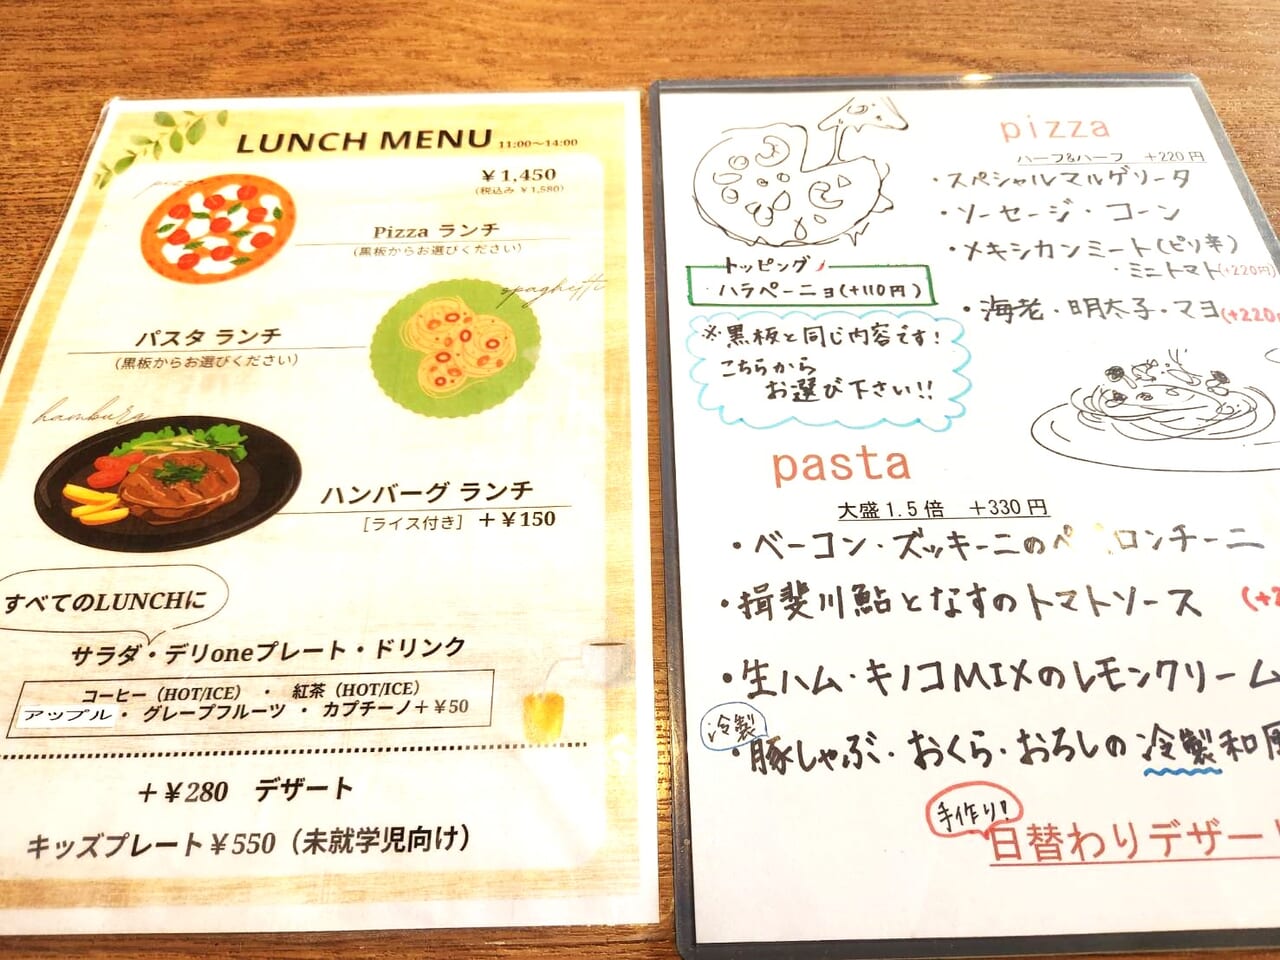 LUNCH MENU 11:00～14:00
pizza
¥1,450
(税込み ¥1,580)
Pizza ランチ
(黒板からお選びください)
spaghetti
パスタ ランチ
(黒板からお選びください)
hamburg
ハンバーグ ランチ
[ライス付き] +¥150
すべてのLUNCHに
サラダ・デリoneプレート・ドリンク
コーヒー (HOT/ICE) ・ 紅茶 (HOT/ICE)
アップル・ グレープフルーツ ・ カプチーノ+¥50
+¥280 デザート
キッズプレート¥550 (未就学児向け)
pizza
ハーフ&ハーフ +220円
・スペシャルマルゲリータ
・ソーセージ・コーン
・メキシカンミート(ピリ辛)
・ミニトマト(+220円)
・海老・明太子・マヨ(+220
トッピング
・ハラペーニョ(+110円)
※黒板と同じ内容です!
こちらから
お選び下さい!!
pasta
大盛1.5倍 +330円
・ベーコン・ズッキーニのペ ロンチーニ
・揖斐川鮎となすのトマトソース (+2
・生ハム・キノコMIXのレモンクリーム
冷製
・豚しゃぶ・おくら・おろしの冷製和風
手作り!
日替わりデザート